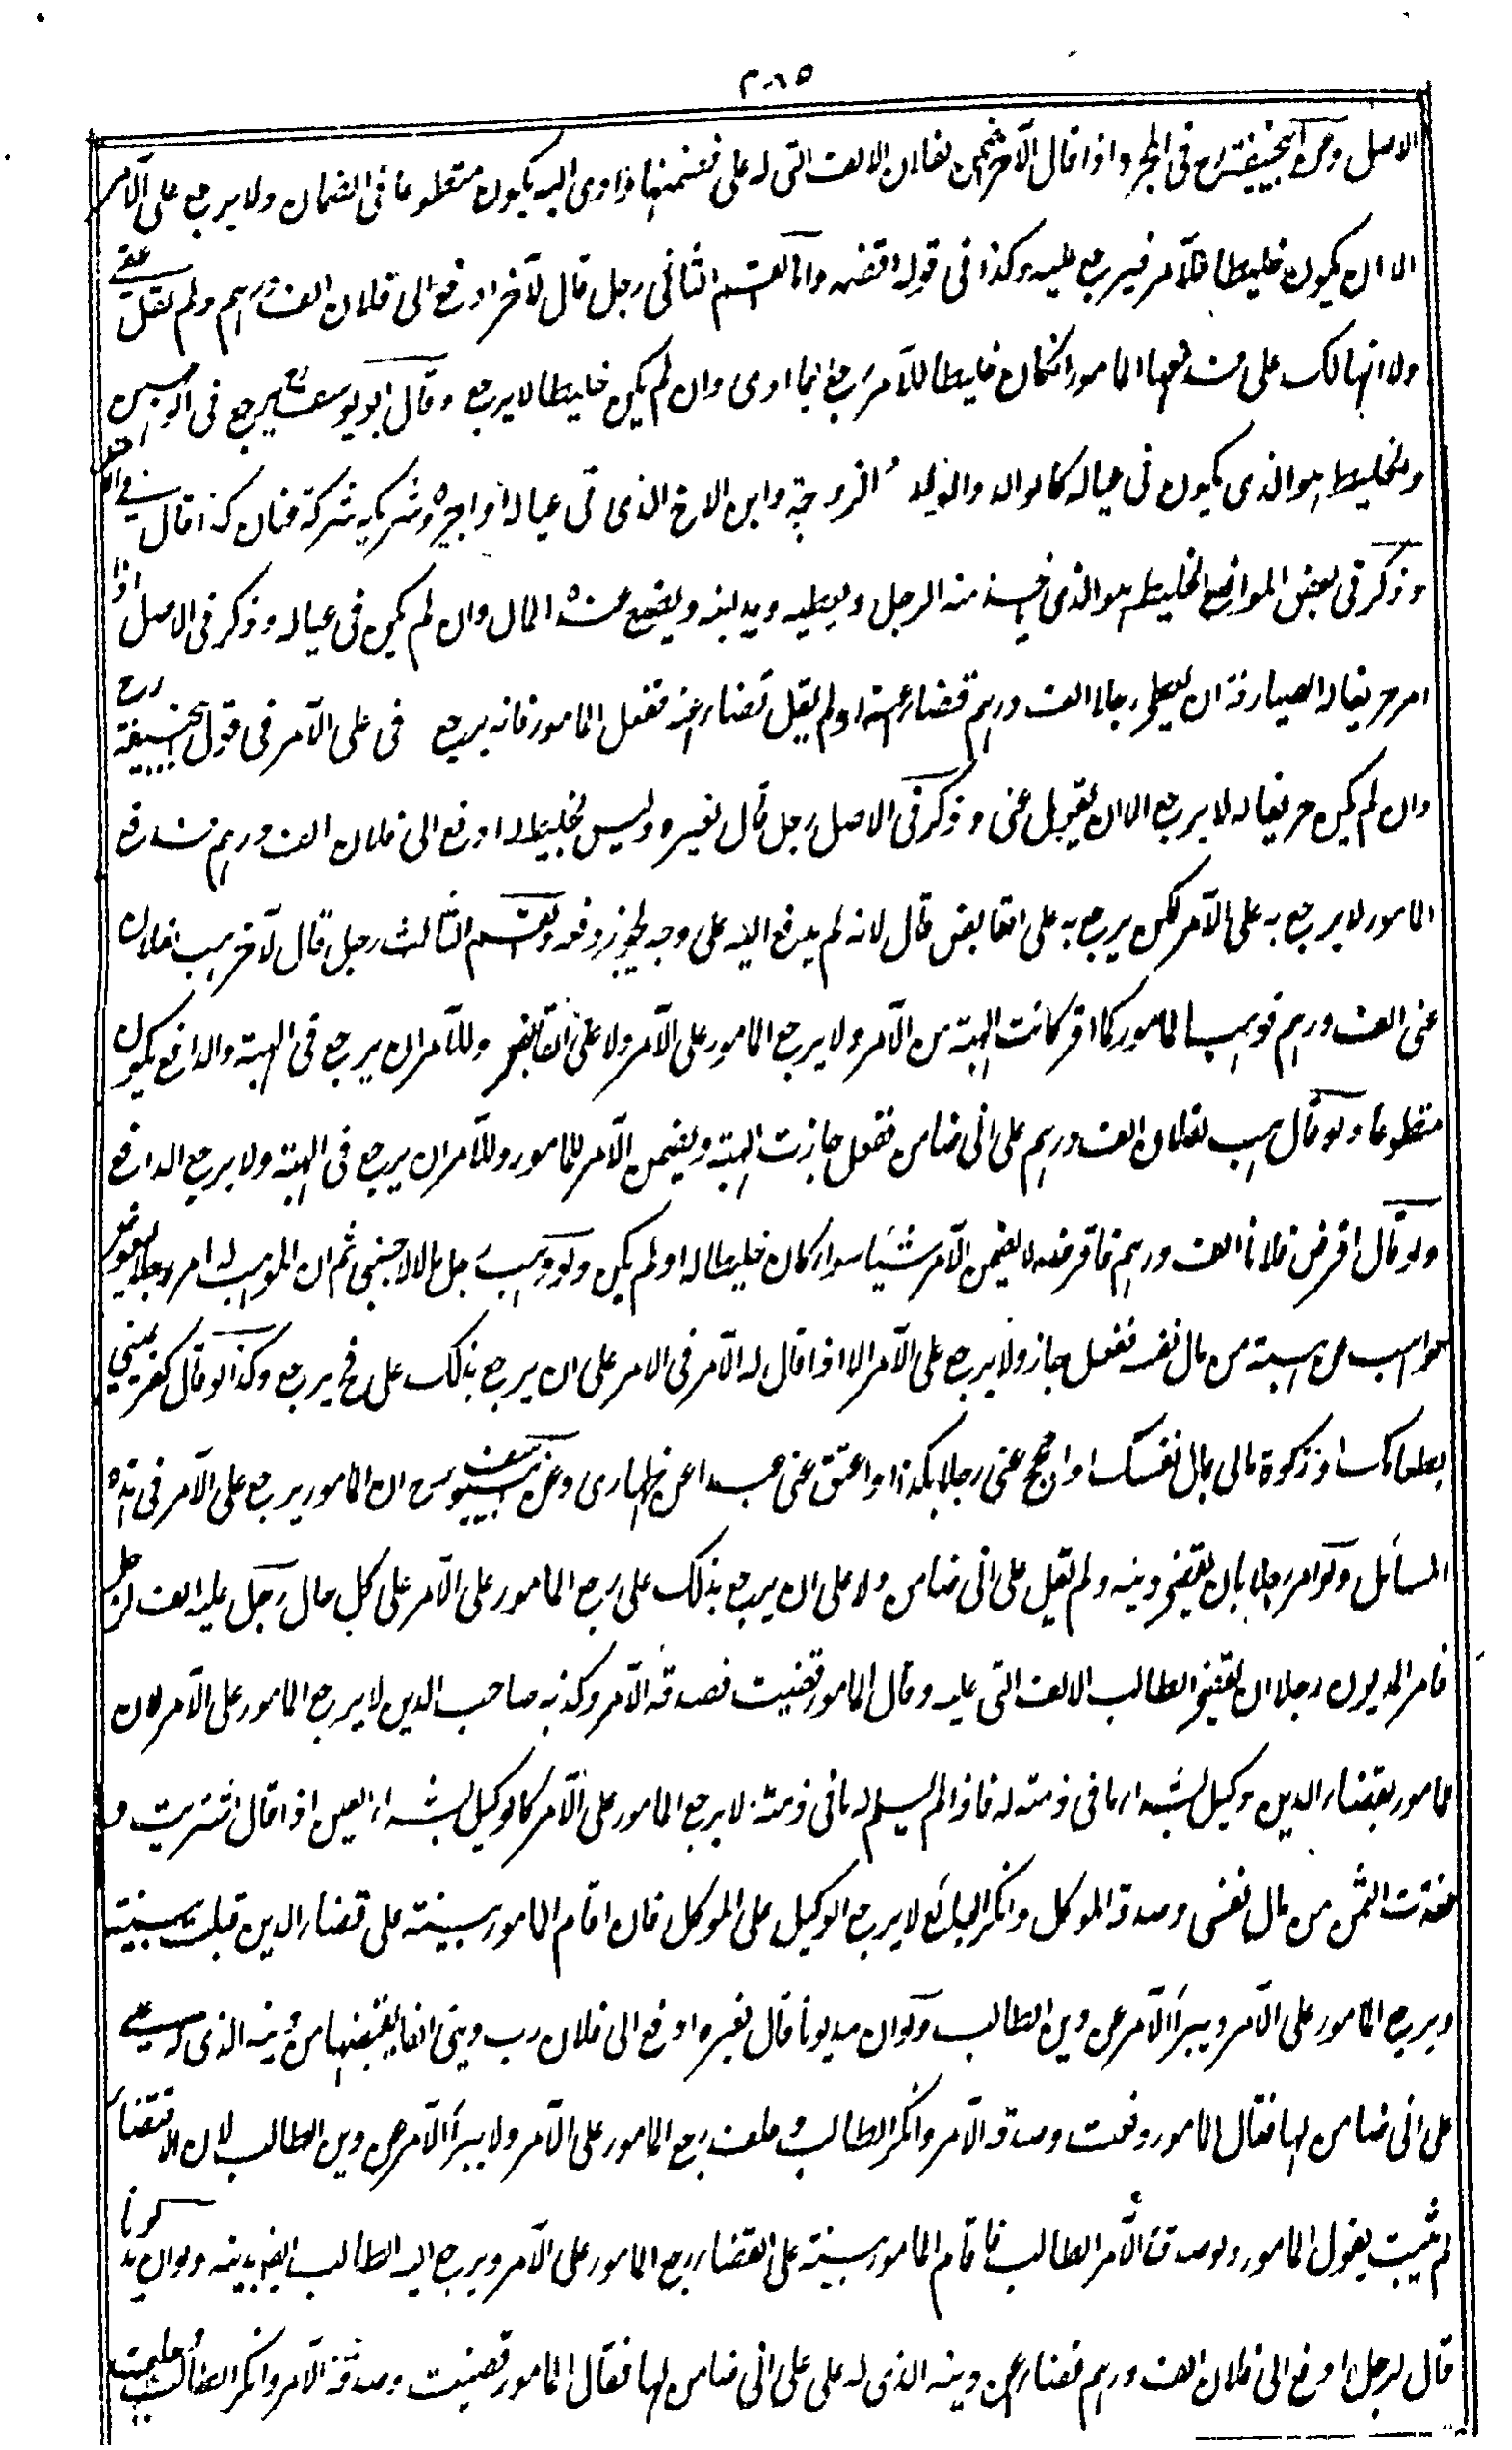 ٣٨٥
الاصل وعن ابيحنيفة رح فى المجرد اذا قال لآخر اضمن لفلان الالف التى له على فضمنها وادى اليه يكون متطوعا فى الضمان ولا يرجع على الآمر
الا ان يكون خليطا للآمر فيرجع عليه وكذا فى قوله اقضه واما القسم الثانى رجل قال لآخر ادفع الى فلان الف درهم ولم يقل عنى
ولا انها لك على فدفعها المامور انكان خليطا للآمر رجع بما ادى وان لم يكن خليطا لا يرجع وقال ابو يوسف رح يرجع فى الوجهين
والخليط هو الذى يكون فى عياله كالوالد والولد والزوجة وابن الاخ الذى فى عياله او اجيره او شريكه شركة عنان كذا قال فى
وذكر فى بعض المواضع الخليط هو الذى ياخذ منه الرجل ويعطيه ويداينه ويضع عنده المال وان لم يكن فى عياله وذكر فى الاصل اذا
امر حريفا له الصيارفة ان يعطى رجلا الف درهم قضاء عنه او لم يقل قضاء عنه ففعل المامور فانه يرجع فى على الآمر فى قول ابيحنيفة رح
وان لم يكن حريفا له لا يرجع الا ان يقول عنى وذكر فى الاصل رجل قال لغيره وليس بخليط له ادفع الى فلان الف درهم فدفع
المامور لا يرجع به على الآمر لكن يرجع به على القابض قال لانه لم يدفع اليه على وجه يجوز دفعه والقسم الثالث رجل قال لآخر هب لفلان
عنى الف درهم فوهب المامور كما امر كانت الهبة من الآمر ولا يرجع المامور على الآمر ولا على القابض وللآمر ان يرجع فى الهبة والدافع يكون
متطوعا ولو قال هب لفلان الف درهم على انى ضامن ففعل جازت الهبة ويضمن الآمر للمامور وللآمر ان يرجع فى الهبة ولا يرجع الدافع
ولو قال اقرض فلانا الف درهم فاقرضه لا يضمن الآمر شيئا سواء كان خليطا له او لم يكن ولو وهب رجل مالا لاجنبى ثم ان الموهوب له امر رجلا ليعوض
الواهب عن هبته من مال نفسه ففعل جاز ولا يرجع على الآمر الا اذا قال له الآمر فى الامر على ان يرجع بذلك على فح يرجع وكذا لو قال كفر يمينى
بطعامك او زكوة مالى بمال نفسك او ان حج عنى رجلا بكذا او اعتق عنى عبدا عن ظهارى وعن ابى يوسف رح ان المامور يرجع على الآمر فى هذه
المسائل ولو امر رجلا بان يقضى دينه ولم يقل على انى ضامن ولا على ان يرجع بذلك على رجع المامور على الآمر على كل حال رجل عليه الف لرجل
فامر المديون رجلا ان يقضى الطالب الالف التى عليه وقال المامور قضيت فصدقه الآمر وكذبه صاحب الدين لا يرجع المامور على الآمر لان
المامور بقضاء الدين وكيل بشراء ما فى ذمته له فاذا لم يسلم له ما فى ذمته لا يرجع المامور على الآمر كالوكيل بشراء العين اذا قال اشتريت و
نقدت الثمن من مال نفسى وصدقه الموكل وانكر البائع لا يرجع الوكيل على الموكل فان اقام المامور بينة على قضاء الدين قبلت بينته
ويرجع المامور على الآمر ويبرأ الآمر عن دين الطالب ولو ان مديونا قال لغيره ادفع الى فلان رب دينى الفا يقبضها من دينه الذى له على
على انى ضامن لها فقال المامور دفعت وصدقه الآمر وانكر الطالب وحلف رجع المامور على الآمر ولا يبرأ الآمر عن دين الطالب لان الاقتضاء
لم يثبت بقول المامور ولو صدق الآمر الطالب فاقام المامور بينة على القضاء رجع المامور على الآمر ويرجع اليه الطالب ايضا بدينه ولو ان مديونا
قال لرجل ادفع الى فلان الف درهم قضاء عن دينه الذى له على على انى ضامن لها فقال المامور قضيت وصدقه الآمر وانكر الطالب وحلف